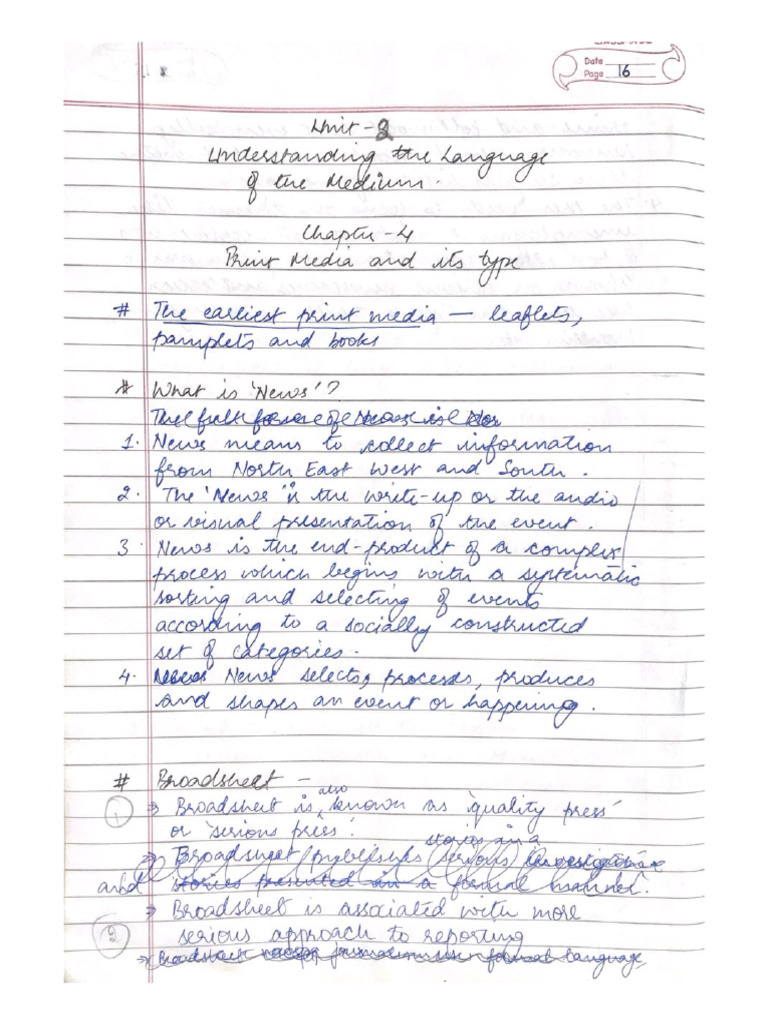 Date
Page 16
Unit-2
Understanding the Language
of the Medium.
Chapter-4
Print Media and its type
# The earliest print media — leaflets,
pamplets and books
# What is 'News'?
The full form of News is
1. News means to collect information
from North East West and South.
2. The 'News' is the write-up or the audio
or visual presentation of the event.
3. News is the end-product of a complex
process which begins with a systematic
sorting and selecting of events
according to a socially constructed
set of categories.
4. News selects, processes, produces
and shapes an event or happening.
# Broadsheet -
also
① → Broadsheet is, known as 'quality press'
or 'serious press'.
stories in a
→ Broadsheet publishes serious investigative
and stories presented in a formal manner.
→ Broadsheet is associated with more
② serious approach to reporting
→ Broadsheet journalism formal language